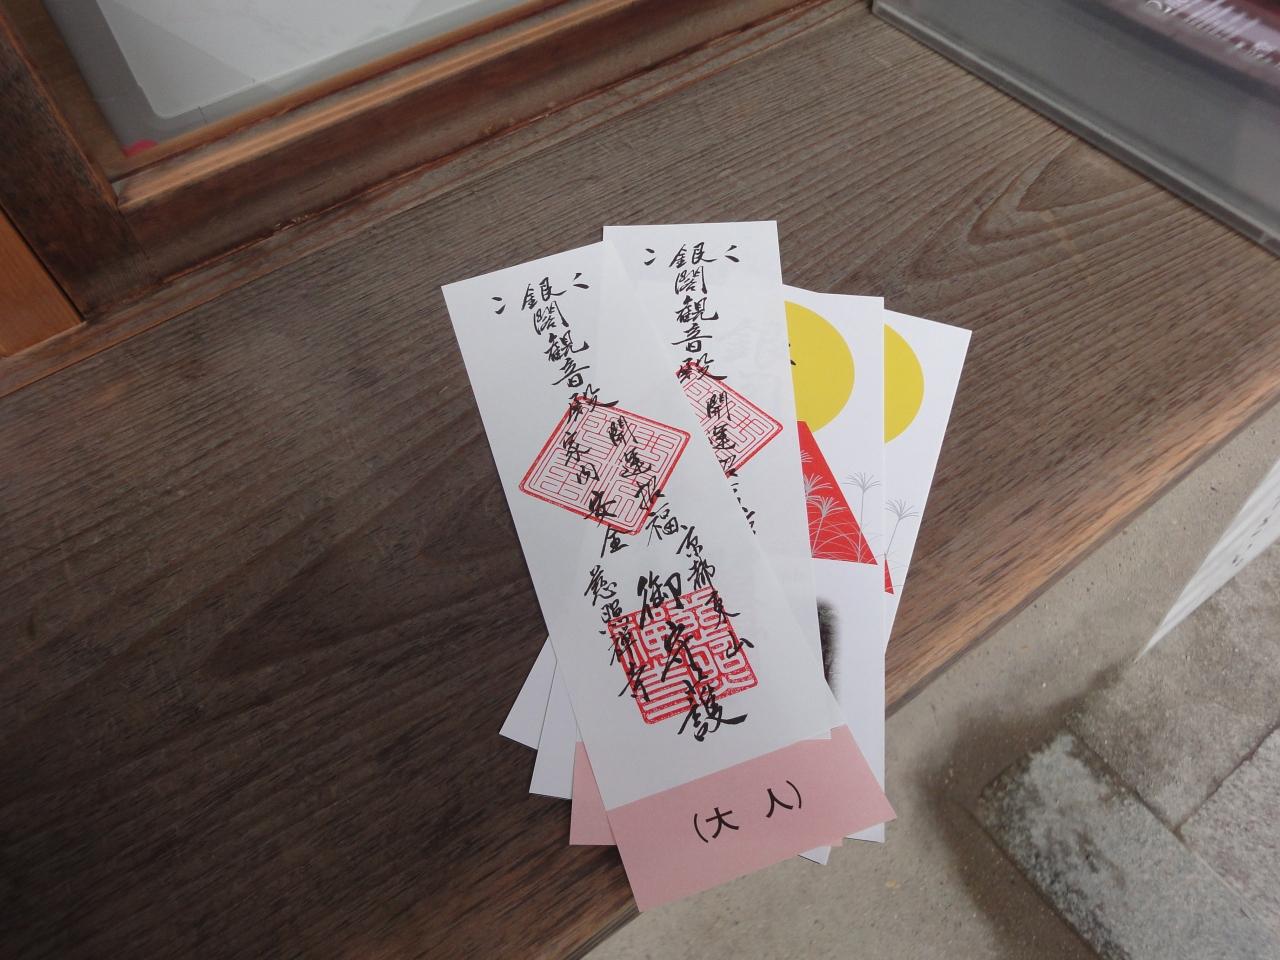 銀閣観音殿
開運招福
家内安全
京都東山
慈照禅寺
御守護
(大人)
銀閣観音殿
開運招